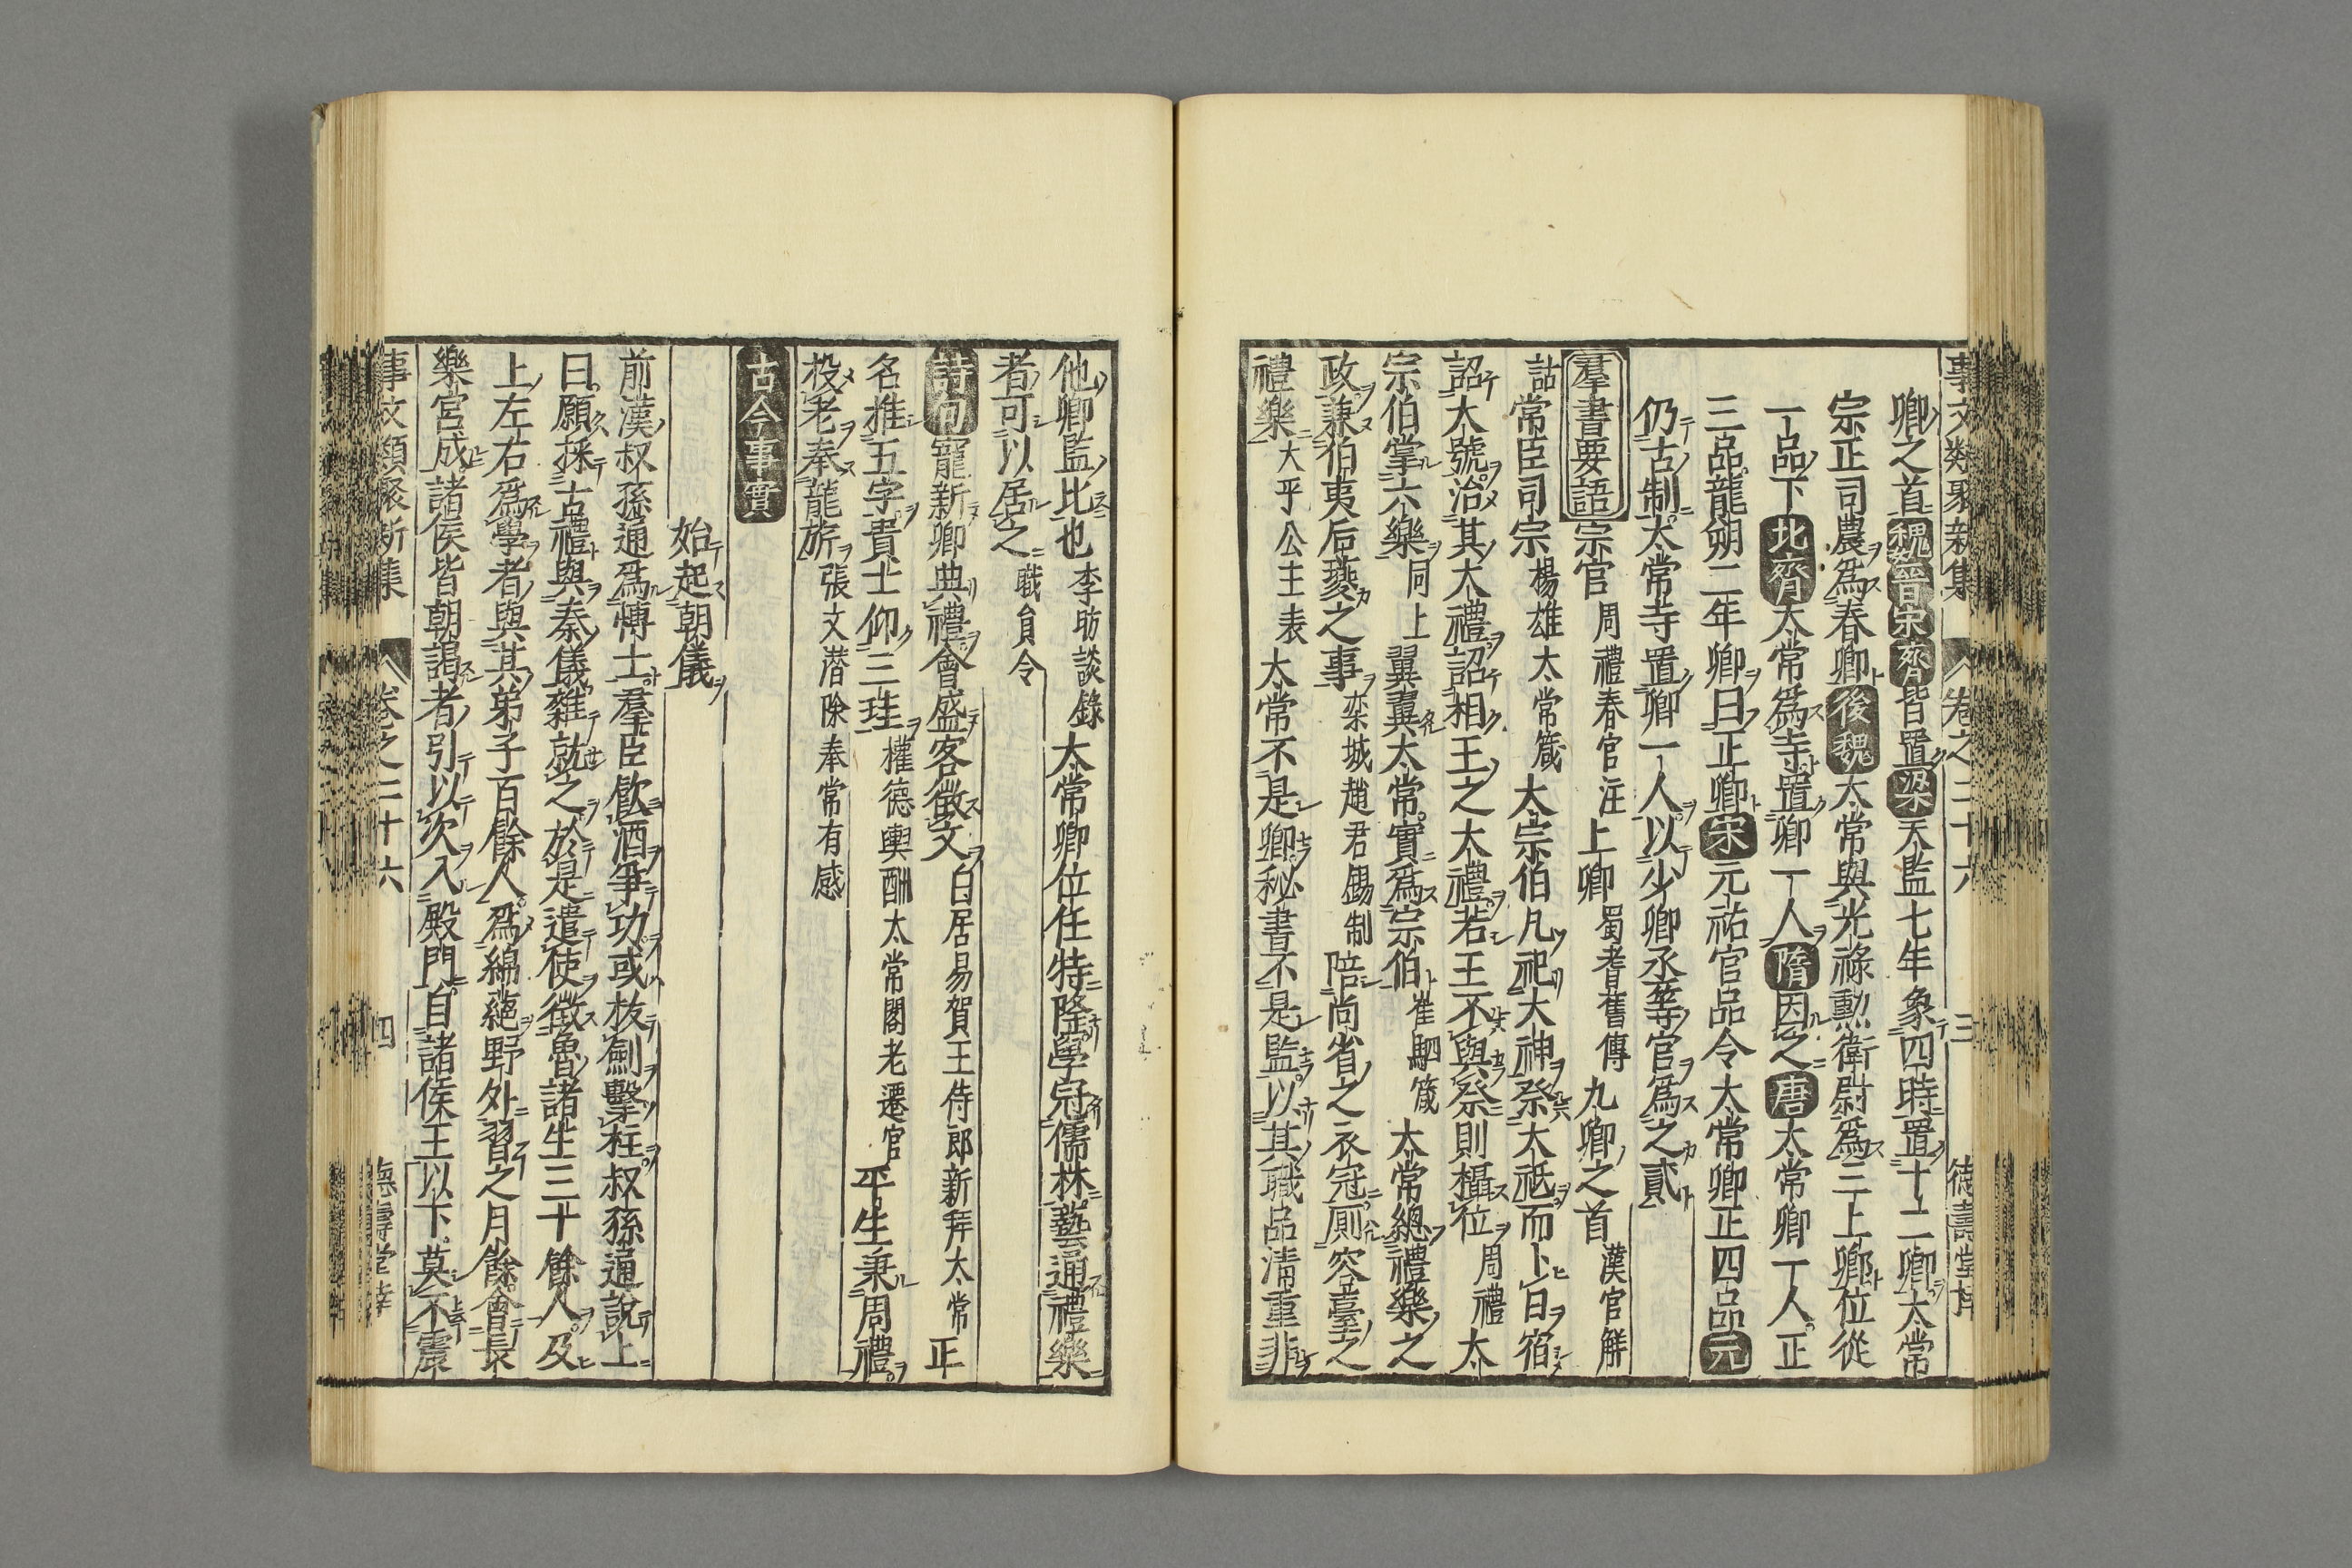 事文類聚新集 卷之二十六 三 德壽堂梓
卿之首魏晉宋齊皆置梁天監七年象四時置十二卿太常
宗正司農爲春卿後魏太常與光祿勳衛尉爲三上卿位從
一品下北齊太常爲寺置卿一人隋因之唐太常卿一人正
三品龍朔二年卿曰正卿宋元祐官品令太常卿正四品元
仍古制太常寺置卿一人以少卿丞等官爲之貳
羣書要語宗官周禮春官注上卿蜀耆舊傳九卿之首漢官觧
詁常臣司宗楊雄太常箴大宗伯凡祀大神祭大祇而卜日宿
詔大號治其大禮詔相王之大禮若王不與祭則攝位周禮大
宗伯掌六樂同上翼翼太常實爲宗伯崔駰箴太常總禮樂之
政兼伯夷后夔之事欒城趙君錫制陪尚省之衣冠厠容臺之
禮樂大乎公主表太常不是卿秘書不是監以其職品淸重非
他卿監比也李昉談錄太常卿位任特隆學冠儒林藝通禮樂
者可以居之職負令
詩句寵新卿典禮會盛客徵文白居易賀王侍郎新拜太常正
名推五字貴士仰三珪權德輿酬太常閣老遷官平生秉周禮
投老奉龍旂張文潜除奉常有感
古今事實
始起朝儀
前漢叔孫通爲博士羣臣飮酒爭功或抜劍擊柱叔孫通說上
曰願採古禮與秦儀雜就之於是遣使徵魯諸生三十餘人及
上左右爲學者與其弟子百餘人爲綿蕝野外習之月餘會長
樂宮成諸侯皆朝謁者引以次入殿門自諸侯王以下莫不震
事文類聚新集 卷之二十六 四 德壽堂梓